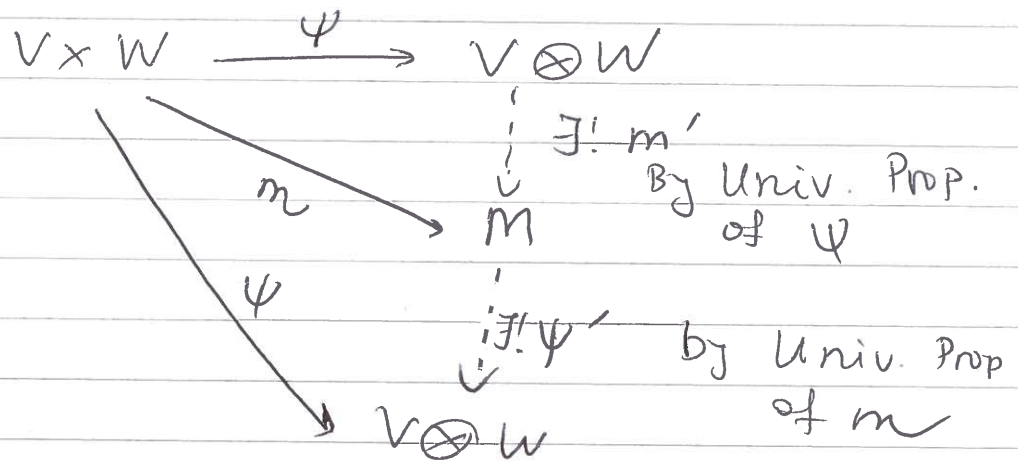 Ψ
V × W → V ⊗ W
∃! m′
By Univ. Prop.
of Ψ
m
M
Ψ
∃! Ψ′ by Univ. Prop
of m
V ⊗ W